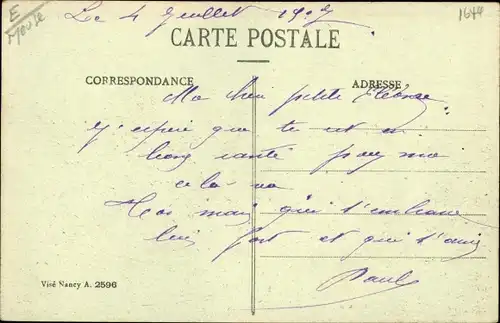 E
Meuse
1644
Le 4 Juillet 1917
CARTE POSTALE
CORRESPONDANCE
ADRESSE
Ma bien petite Eléonore
J'espère que tu est en
bonne santé pour moi
cela va
ton mari qui t'embrasse
bien fort et qui t'aime
Paul
Visé Nancy A. 2596